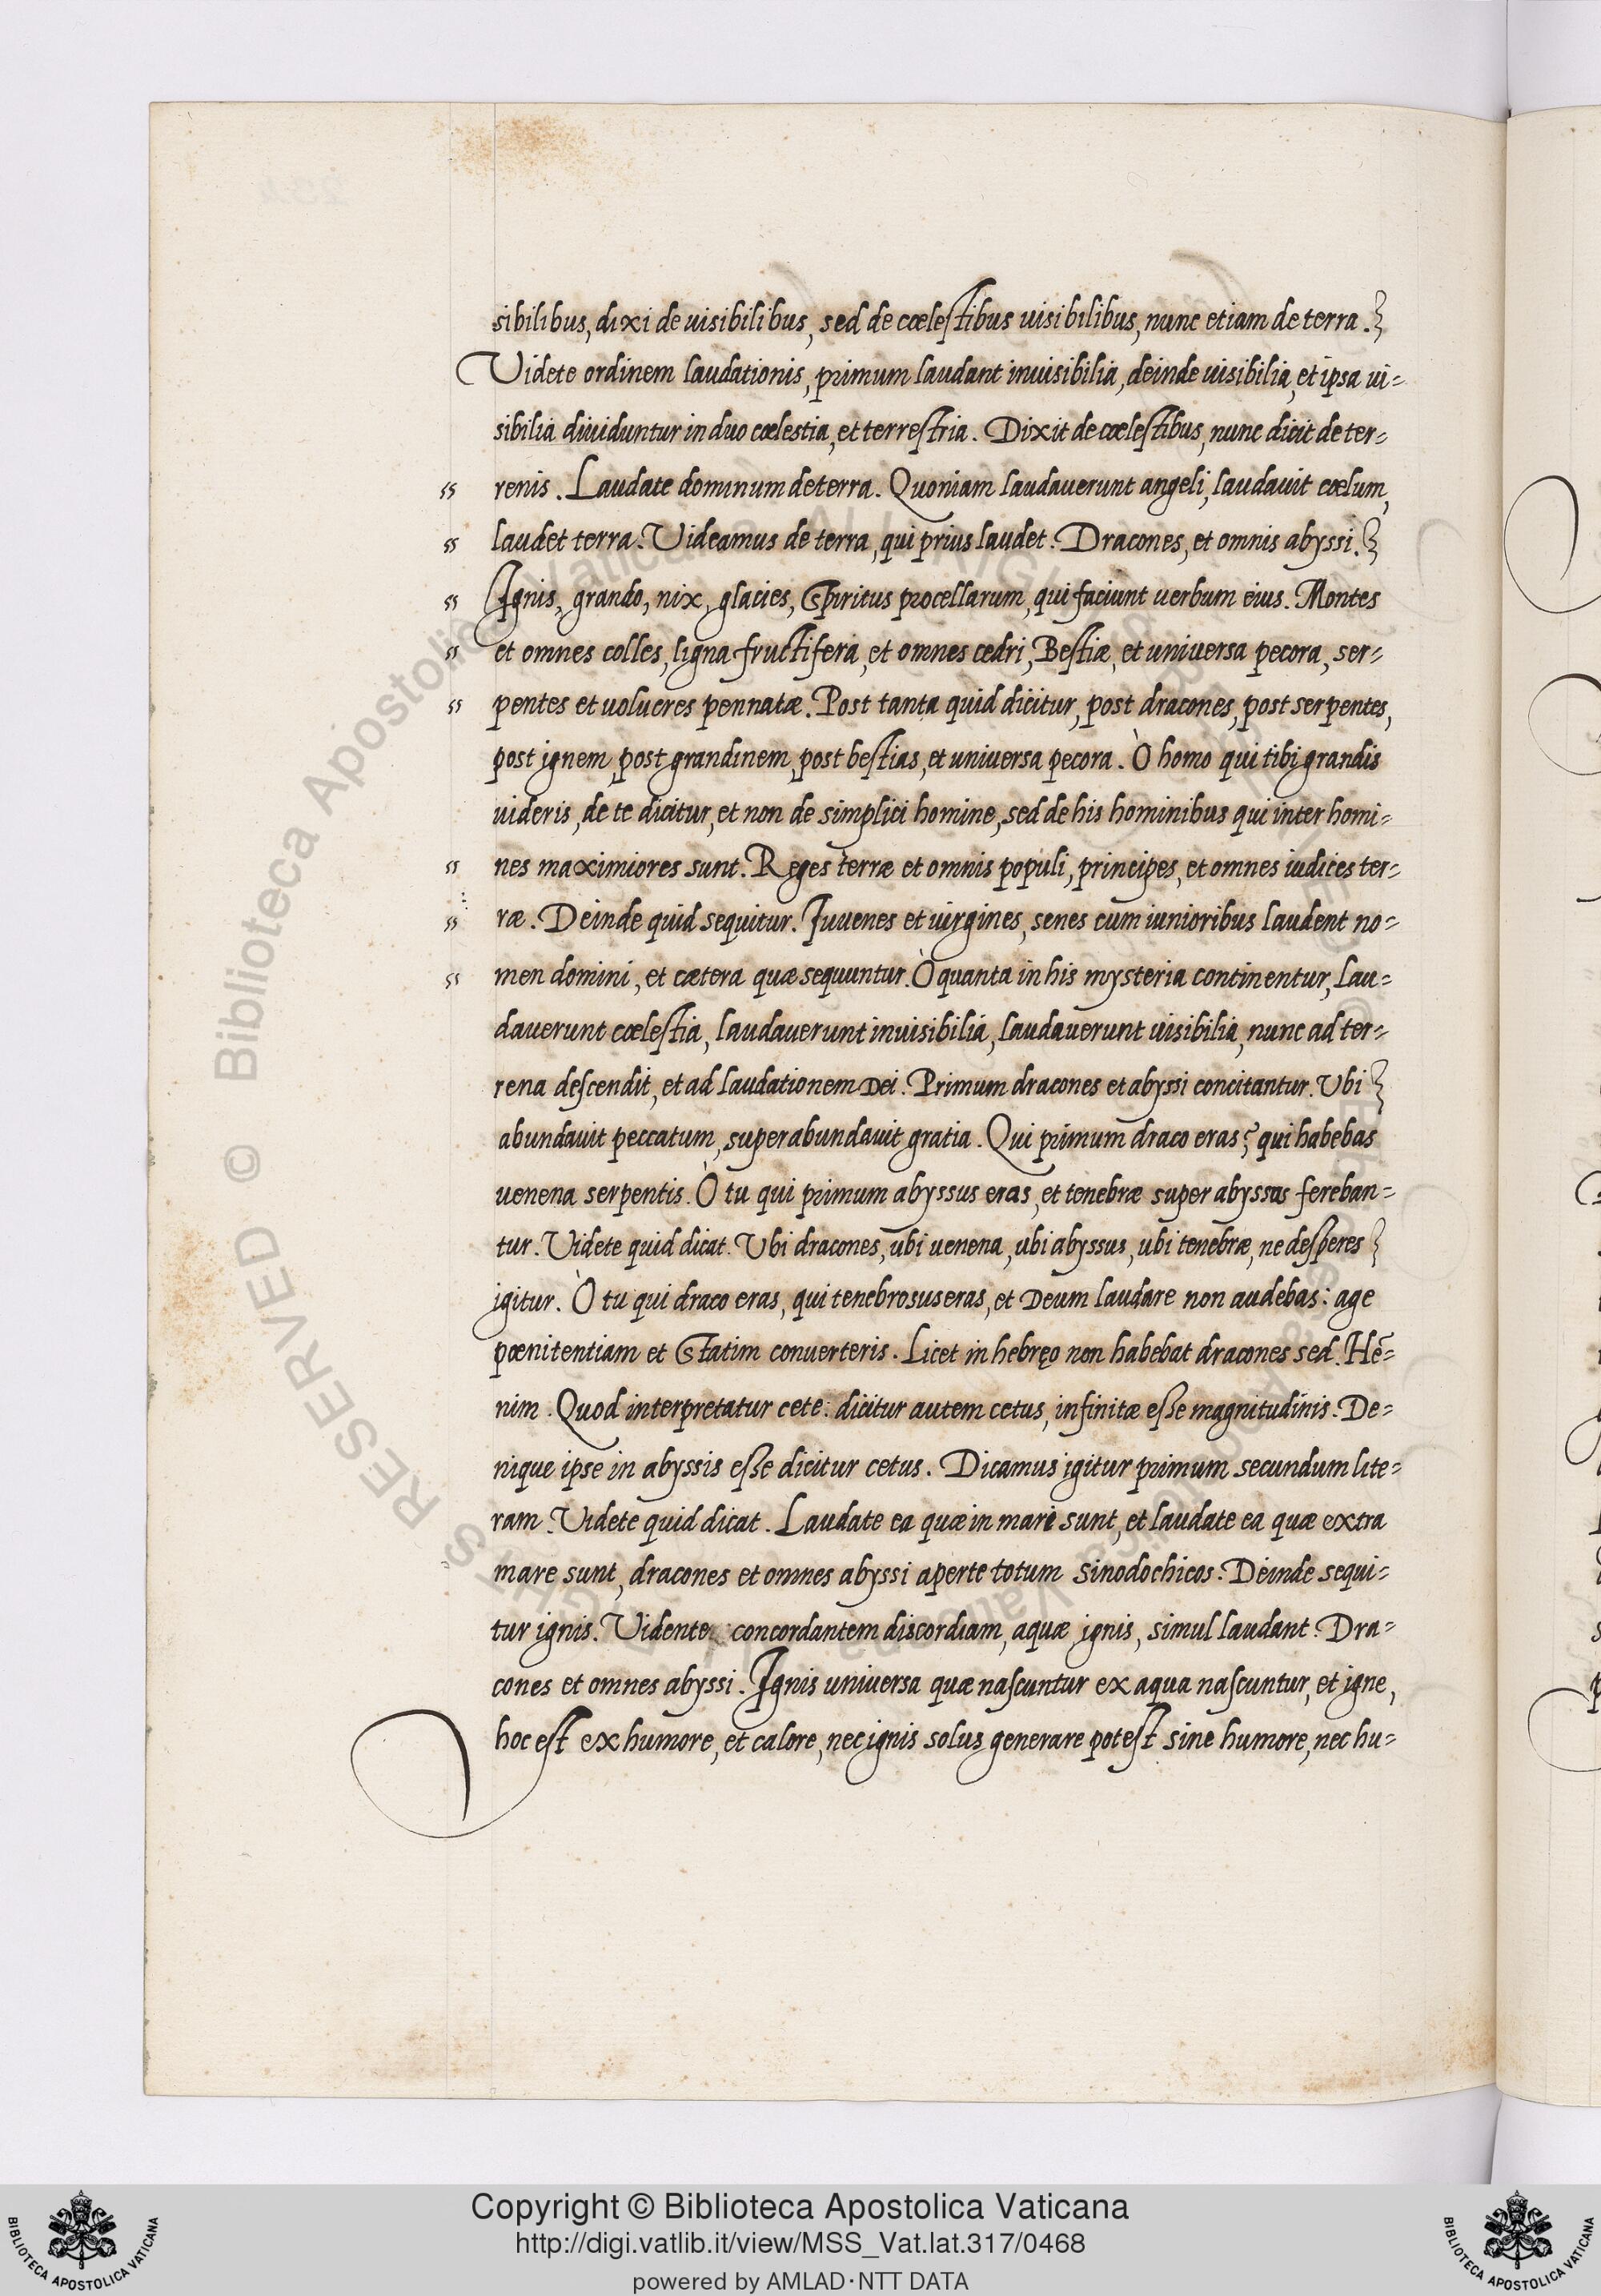 sibilibus, dixi de uisibilibus, sed de cœlestibus uisibilibus, nunc etiam de terra.
Videte ordinem laudationis, primum laudant inuisibilia, deinde uisibilia, et ipsa ui=
sibilia diuiduntur in duo cœlestia, et terrestria. Dixit de cœlestibus, nunc dicit de ter=
renis. Laudate dominum de terra. Quoniam laudauerunt angeli, laudauit cœlum,
laudet terra. Videamus de terra, qui prius laudet. Dracones, et omnis abyssi.
Ignis, grando, nix, glacies, Spiritus procellarum, qui faciunt uerbum eius. Montes
et omnes colles, ligna fructifera, et omnes cedri, Bestiæ, et uniuersa pecora, ser=
pentes et uolucres pennatæ. Post tanta quid dicitur, post dracones, post serpentes,
post ignem, post grandinem, post bestias, et uniuersa pecora. Ò homo qui tibi grandis
uideris, de te dicitur, et non de simplici homine, sed de his hominibus qui inter homi=
nes maximiores sunt. Reges terræ et omnis populi, principes, et omnes iudices ter=
ræ. Deinde quid sequitur. Iuuenes et uirgines, senes cum iunioribus laudent no=
men domini, et cætera quæ sequuntur. Ò quanta in his mysteria continentur, Lau=
dauerunt cœlestia, laudauerunt inuisibilia, laudauerunt uisibilia, nunc ad ter=
rena descendit, et ad laudationem Dei. Primum dracones et abyssi concitantur. Vbi
abundauit peccatum, superabundauit gratia. Qui primum draco eras? qui habebas
uenena serpentis. Ò tu qui primum abyssus eras, et tenebræ super abyssus fereban=
tur. Videte quid dicat. Vbi dracones, ubi uenena, ubi abyssus, ubi tenebræ, ne desperes
igitur. Ò tu qui draco eras, qui tenebrosus eras, et Deum laudare non audebas: age
pœnitentiam et Statim conuerteris. Licet in hebręo non habebat dracones sed. Hē=
nim. Quod interpretatur cete: dicitur autem cetus, infinitæ esse magnitudinis. De=
nique ipse in abyssis esse dicitur cetus. Dicamus igitur primum secundum lite=
ram. Videte quid dicat. Laudate ea quæ in mari sunt, et laudate ea quæ extra
mare sunt, dracones et omnes abyssi aperte totum sinodochicos. Deinde sequi=
tur ignis. Vidente concordantem discordiam, aquæ ignis, simul laudant. Dra=
cones et omnes abyssi. Ignis uniuersa quæ nascuntur ex aqua nascuntur, et igne,
hoc est ex humore, et calore, nec ignis solus generare potest sine humore, nec hu=
Copyright © Biblioteca Apostolica Vaticana
http://digi.vatlib.it/view/MSS_Vat.lat.317/0468
powered by AMLAD·NTT DATA